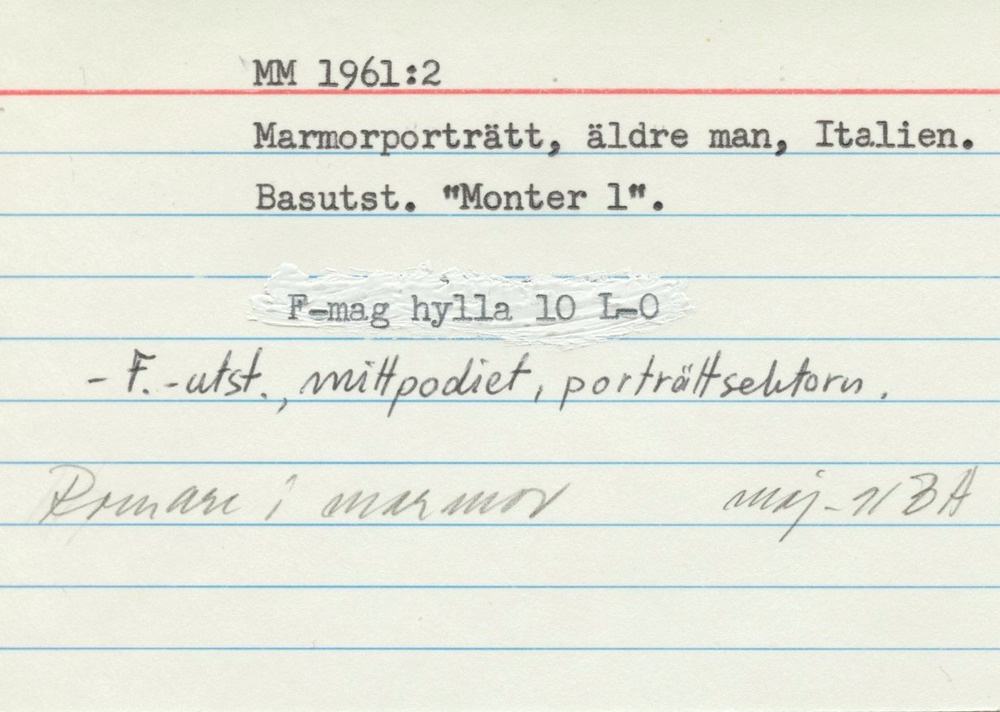 MM 1961:2
Marmorporträtt, äldre man, Italien.
Basutst. "Monter 1".
F-mag hylla 10 L-O
- F.-utst., mittpodiet, porträttsektorn.
Romare i marmor maj-91 BA